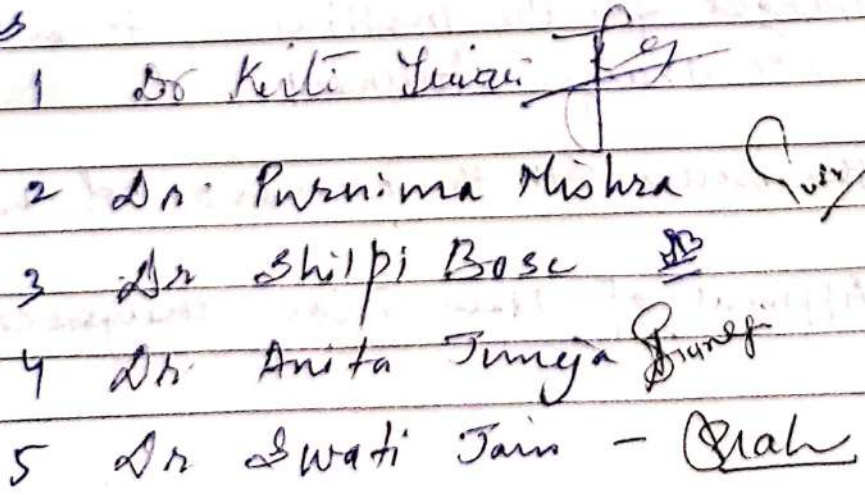 1 Dr Kirti
2 Dr. Purnima Mishra
3 Dr Shilpi Bose
4 Dr. Anita Juneja
5 Dr Swati Jain -